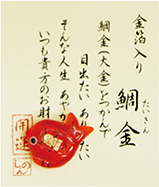 金箔入り
鯛金
たいきん
鯛金(大金)をつかんで
目出たい あり たい
そんな人生 あやか
いつも貴方のお財
開運